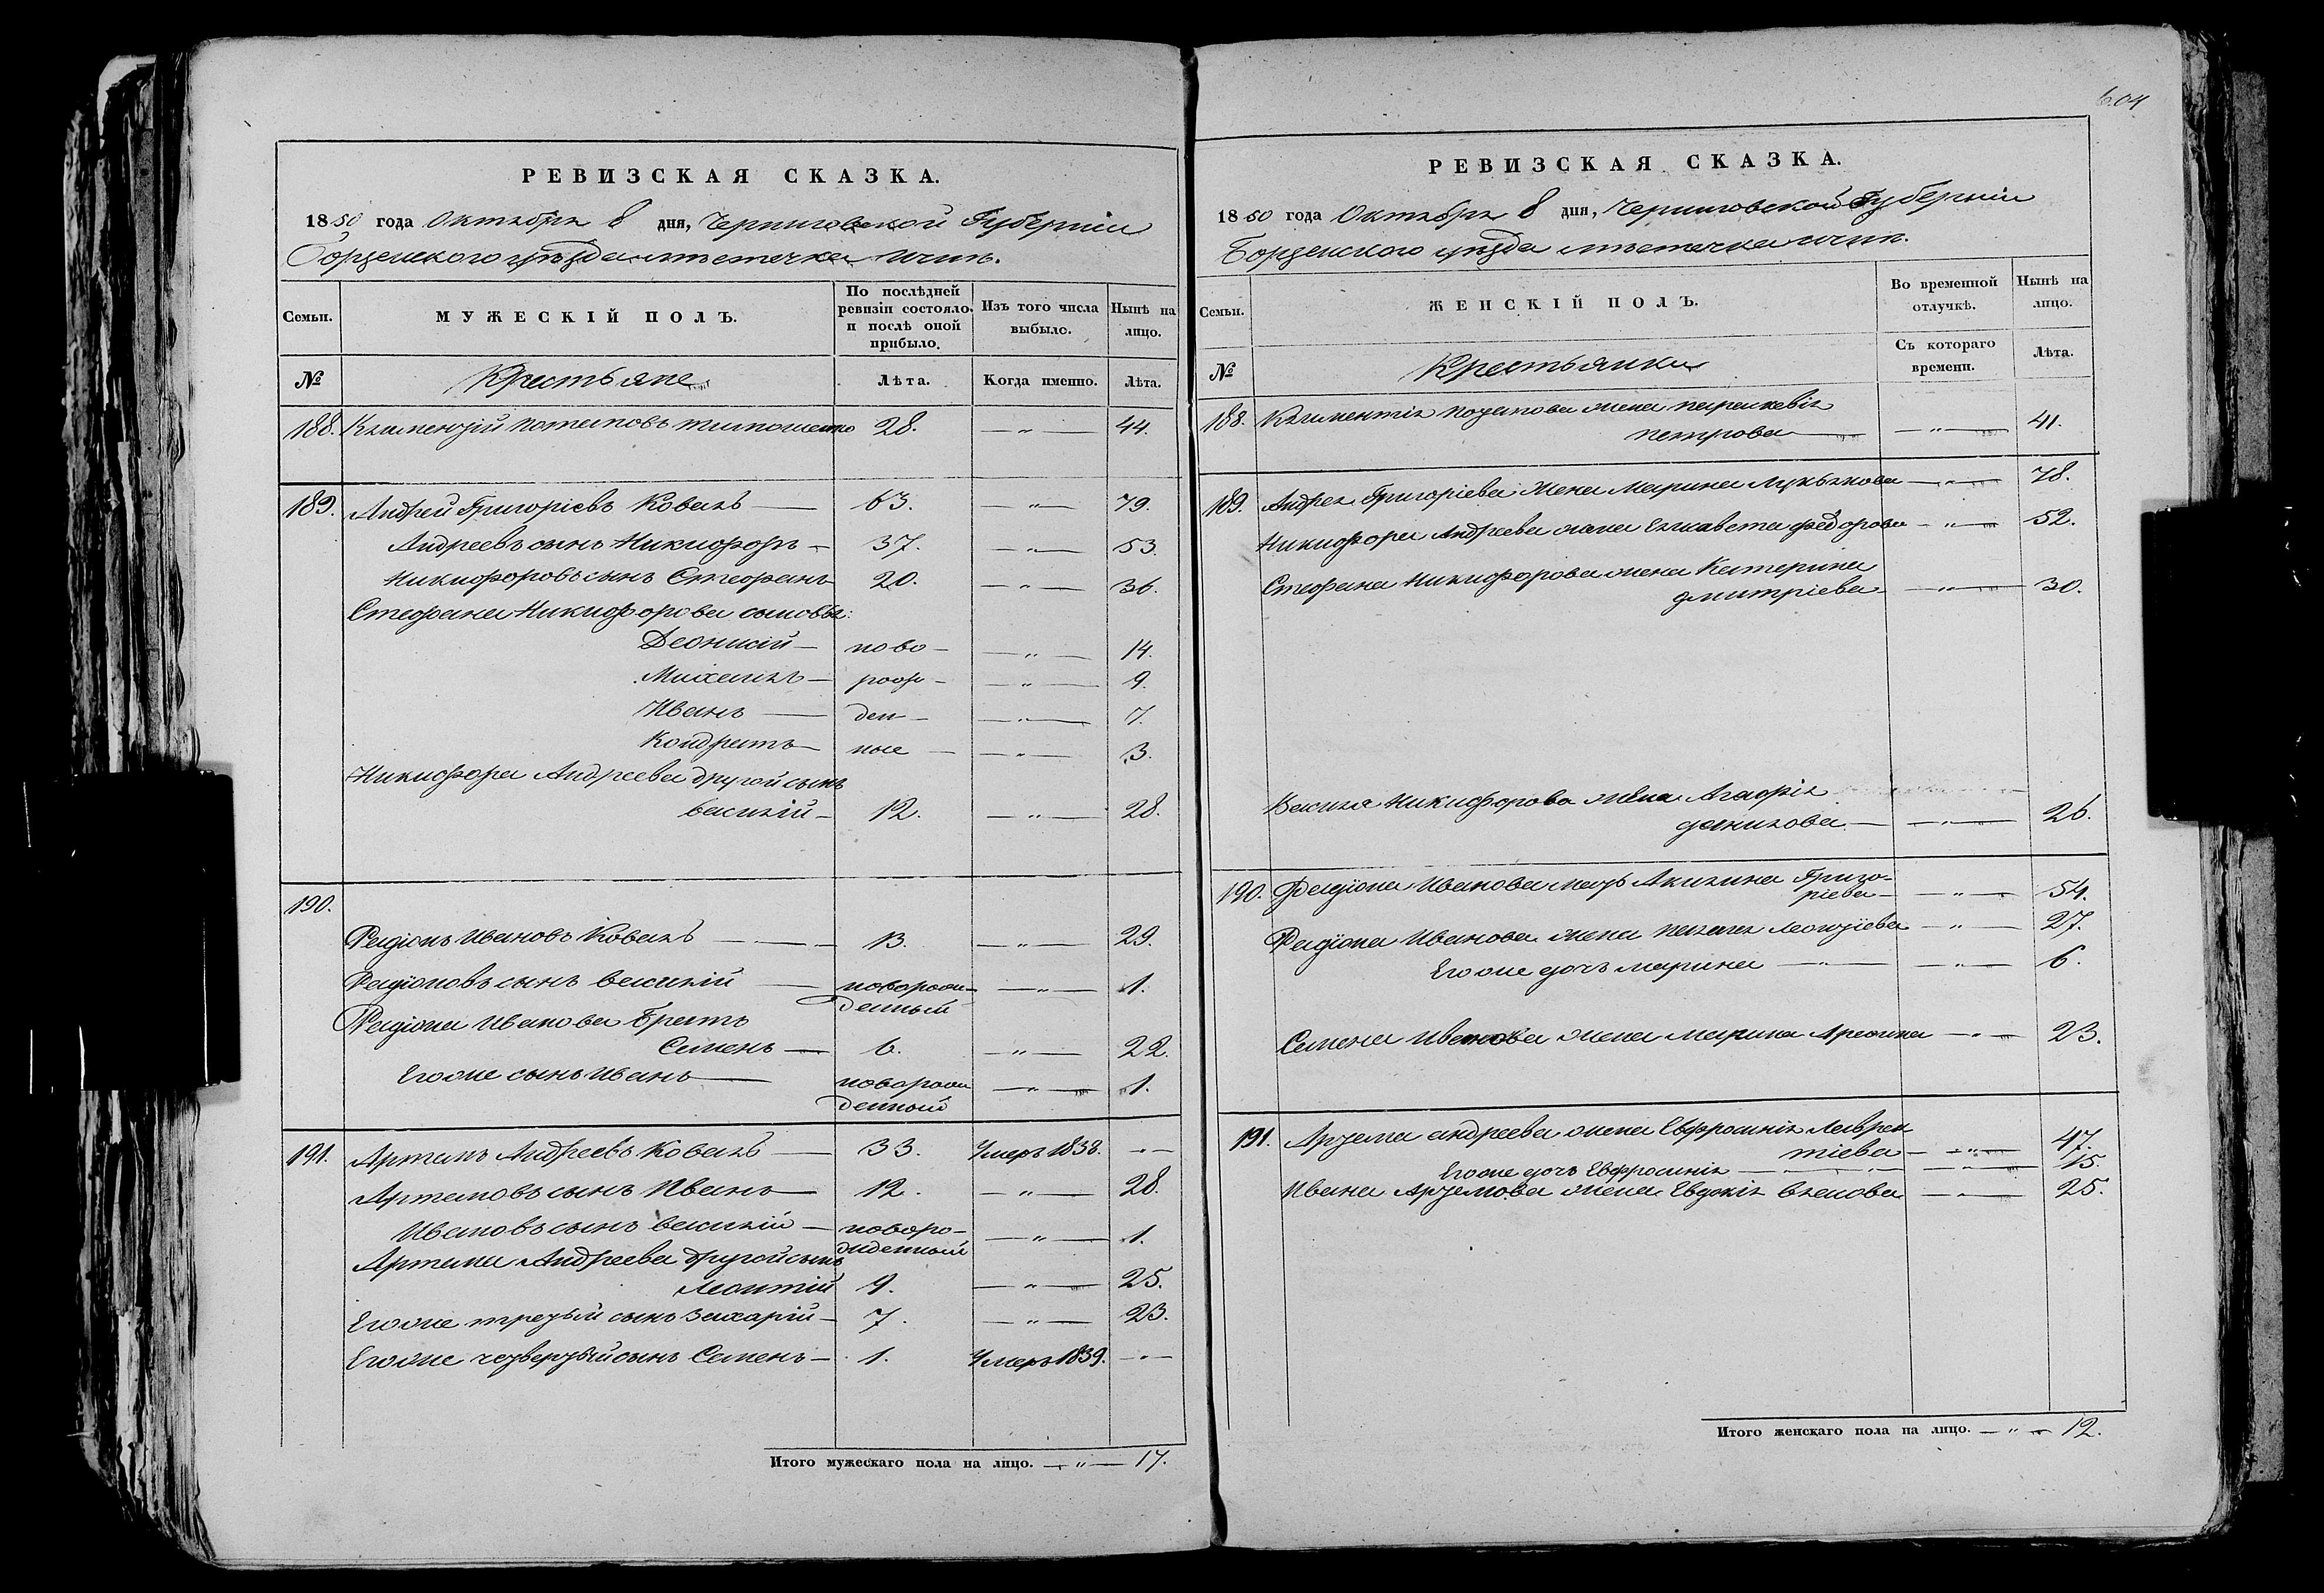 РЕВИЗСКАЯ СКАЗКА.
1850 года Октября 8 дня, Черниговской Губерніи
Борзенского уѣзда мѣстечка Ични.
Семьи.
МУЖЕСКІЙ ПОЛЪ.
По послѣдней ревизіи состояло, и послѣ оной прибыло.
Изъ того числа выбыло.
Нынѣ на лицо.
№
Крестьяне
Лѣта.
Когда именно.
Лѣта.
188. Климентій Потаповъ 28. — „ — 44.
189. Андрей Григоріевъ Коваль — 63. — „ — 79.
Андреевъ сынъ Никифоръ — 37. — „ — 53.
Никифоровъ сынъ Стефанъ 20. — „ — 36.
Стефана Никифорова сыновья:
Деонисій — ново — — „ — 14.
Михаилъ — рож — — „ — 9.
Иванъ — ден — — „ — 7.
Кондратъ — ные — — „ — 3.
Никифора Андреева другой сынъ
Василій — 12. — „ — 28.
190.
Радіонъ Ивановъ Коваль — 13. — „ — 29.
Радіоновъ сынъ Василій — новорож- — „ — 1.
денный
Радіона Иванова Братъ
Семенъ — 6. — „ — 22.
Его же сынъ Иванъ — новорож — „ — 1.
денный
191. Артемъ Андреевъ Коваль — 33. Умеръ 1838. — „ —
Артемовъ сынъ Иванъ — 12. — „ — 28.
Ивановъ сынъ Василій — новоро- — „ — 1.
жденный
Артема Андреева другой сынъ
Леонтій 9. — „ — 25.
Его же третьій сынъ Захарій — 7. — „ — 23.
Его же четвертый сынъ Семенъ — 1. Умеръ 1839. — „ —
Итого мужескаго пола на лицо. — „ — 17.
604
РЕВИЗСКАЯ СКАЗКА.
1850 года Октября 8 дня, Черниговской Губерніи
Борзенского уѣзда мѣстечка Ични.
Семьи.
ЖЕНСКІЙ ПОЛЪ.
Во временной отлучкѣ.
Нынѣ на лицо.
№
Крестьянки
Съ котораго времени.
Лѣта.
188. Климентія Потапова жена Параскевія
Петрова — „ — 41.
189. Андрея Григоріева Жена Марина Лукьянова — „ — 78.
Никифора Андреева жена Елисавета Федорова — „ — 52.
Стефана Никифорова жена Катерина
Дмитріева — „ — 30.
Василія Никифорова жена Агафія
Данилова — „ — 26.
190. Радіона Иванова мать Акилина Григо-
ріева — „ — 54.
Радіона Иванова жена Пелагея Леонтіева — „ — 27.
Его же дочъ Марина — „ — 6.
Семена Иванова жена Марина — „ — 23.
191. Артема Андреева жена Евфросинія Лаврен
тіева — „ — 47.
Его же дочъ Евфросинія — „ — 15.
Ивана Артемова жена Евдокія Власова — „ — 25.
Итого женскаго пола на лицо. — „ — 12.